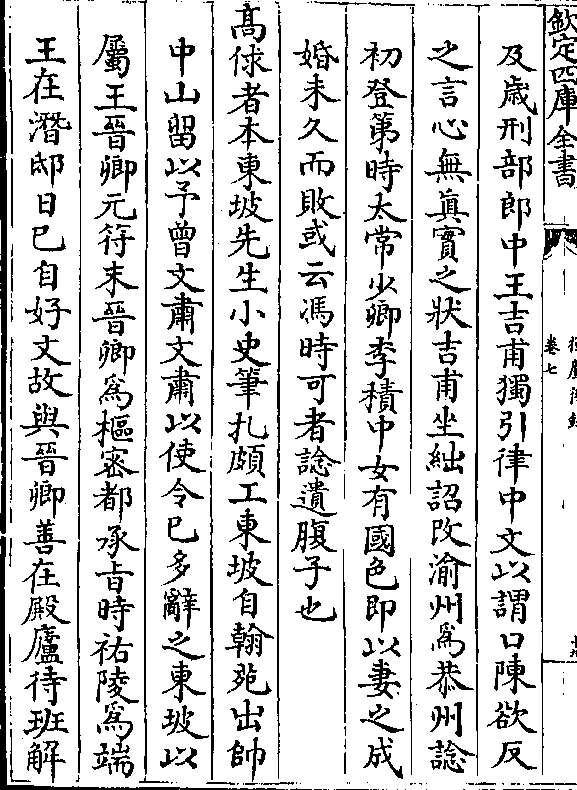 欽定四庫全書
卷七
及歳刑部郎中王吉甫獨引律中文以謂口陳欲反
之言心無眞實之狀吉甫坐絀詔改渝州爲恭州諗
初登第時太常少卿李積中女有國色即以妻之成
婚未久而敗或云馮時可者諗遺腹子也
髙俅者本東坡先生小史筆札頗工東坡自翰苑出帥
中山留以予曾文肅文肅以使令已多辭之東坡以
屬王晉卿元符末晉卿爲樞密都承㫖時祐陵爲端
王在潛邸日已自好文故與晉卿善在殿廬待班解